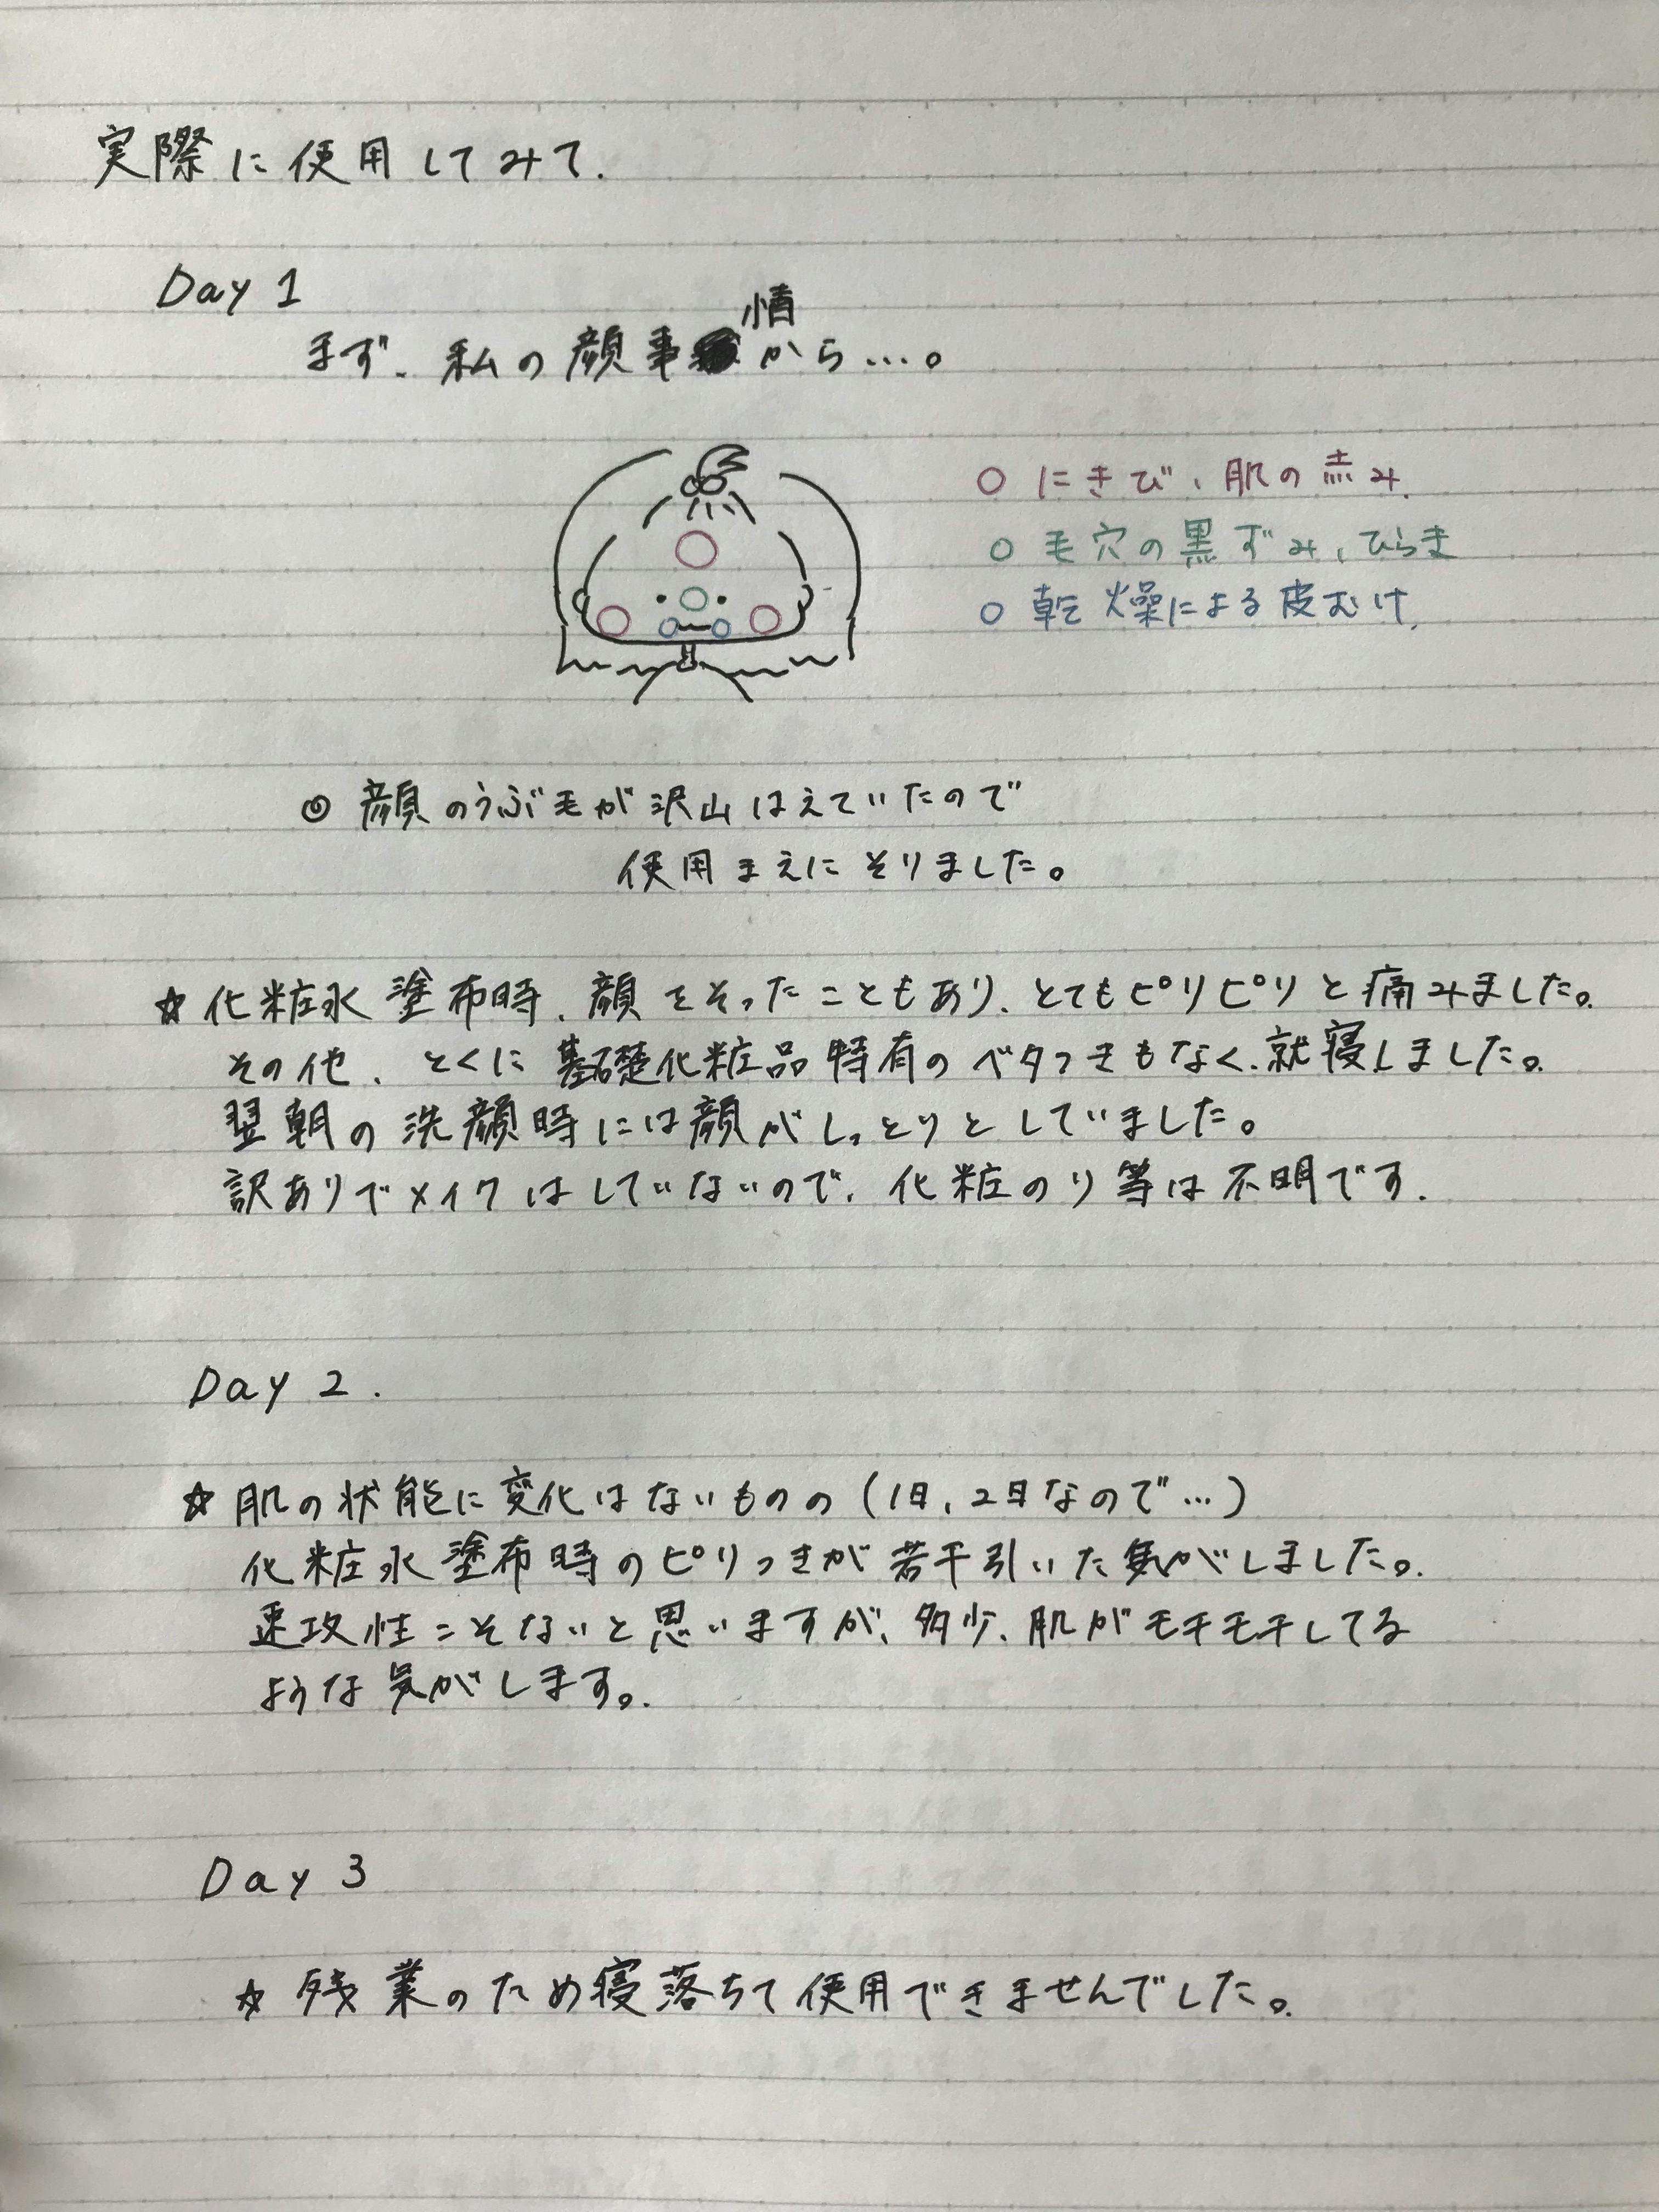 実際に使用してみて.
Day 1
まず、私の顔事情から…。
○ にきび、肌の赤み.
○ 毛穴の黒ずみ、ひらき
○ 乾燥による皮むけ.
◎ 顔のうぶ毛が沢山はえていたので
使用まえにそりました。
☆ 化粧水塗布時、顔をそったこともあり、とてもピリピリと痛みました。
その他、とくに基礎化粧品特有のベタつきもなく、就寝しました。
翌朝の洗顔時には顔がしっとりとしていました。
訳ありでメイクはしていないので、化粧のり等は不明です.
Day 2.
☆ 肌の状態に変化はないものの (1日、2日なので…)
化粧水塗布時のピリつきが若干引いた気がしました。
速攻性こそないと思いますが、多少、肌がモチモチしてる
ような気がします。
Day 3
☆ 残業のため寝落ちて使用できませんでした。